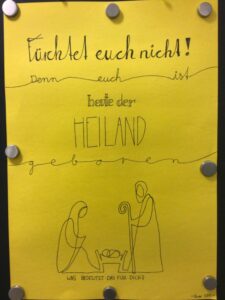 Fürchtet euch nicht!
Denn euch ist
heute der
HEILAND
geboren
WAS BEDEUTET DAS FÜR DICH?